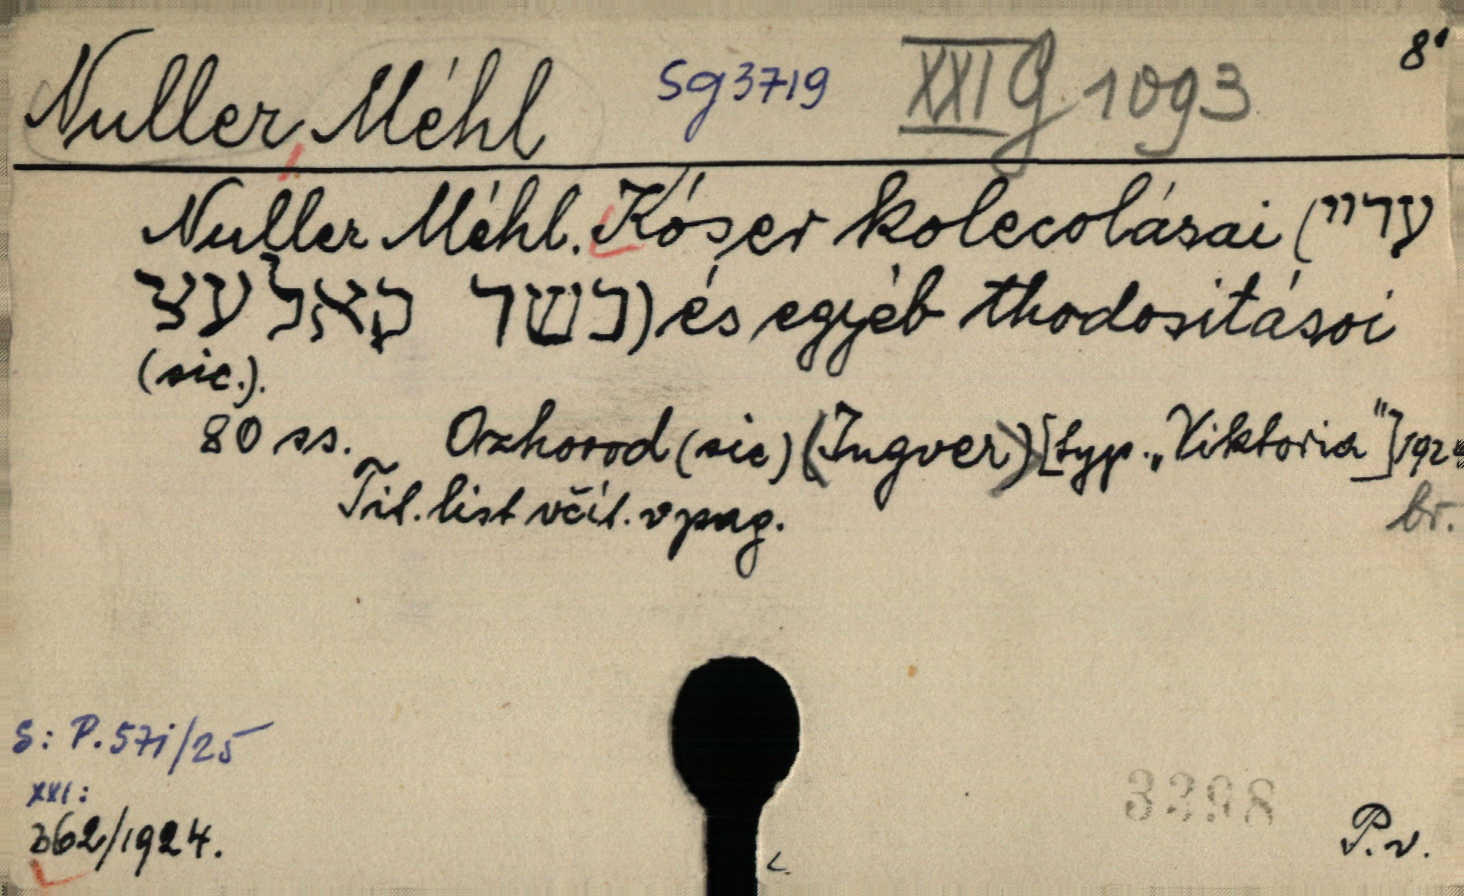 Nuller, Méhl Sg3719 XXI G 1093 8°
Nuller Méhl. Kóser kolecolásai (עריי
כשר קאלעצ) és egyéb thodositásoi
(sic.).
80 ss. Ozhorod (sic) (Ingver) [typ. „Viktoria"] 1924
Tit. list včít. v pag.
br.
S: P. 571/25
XXI:
362/1924.
3398
P.v.